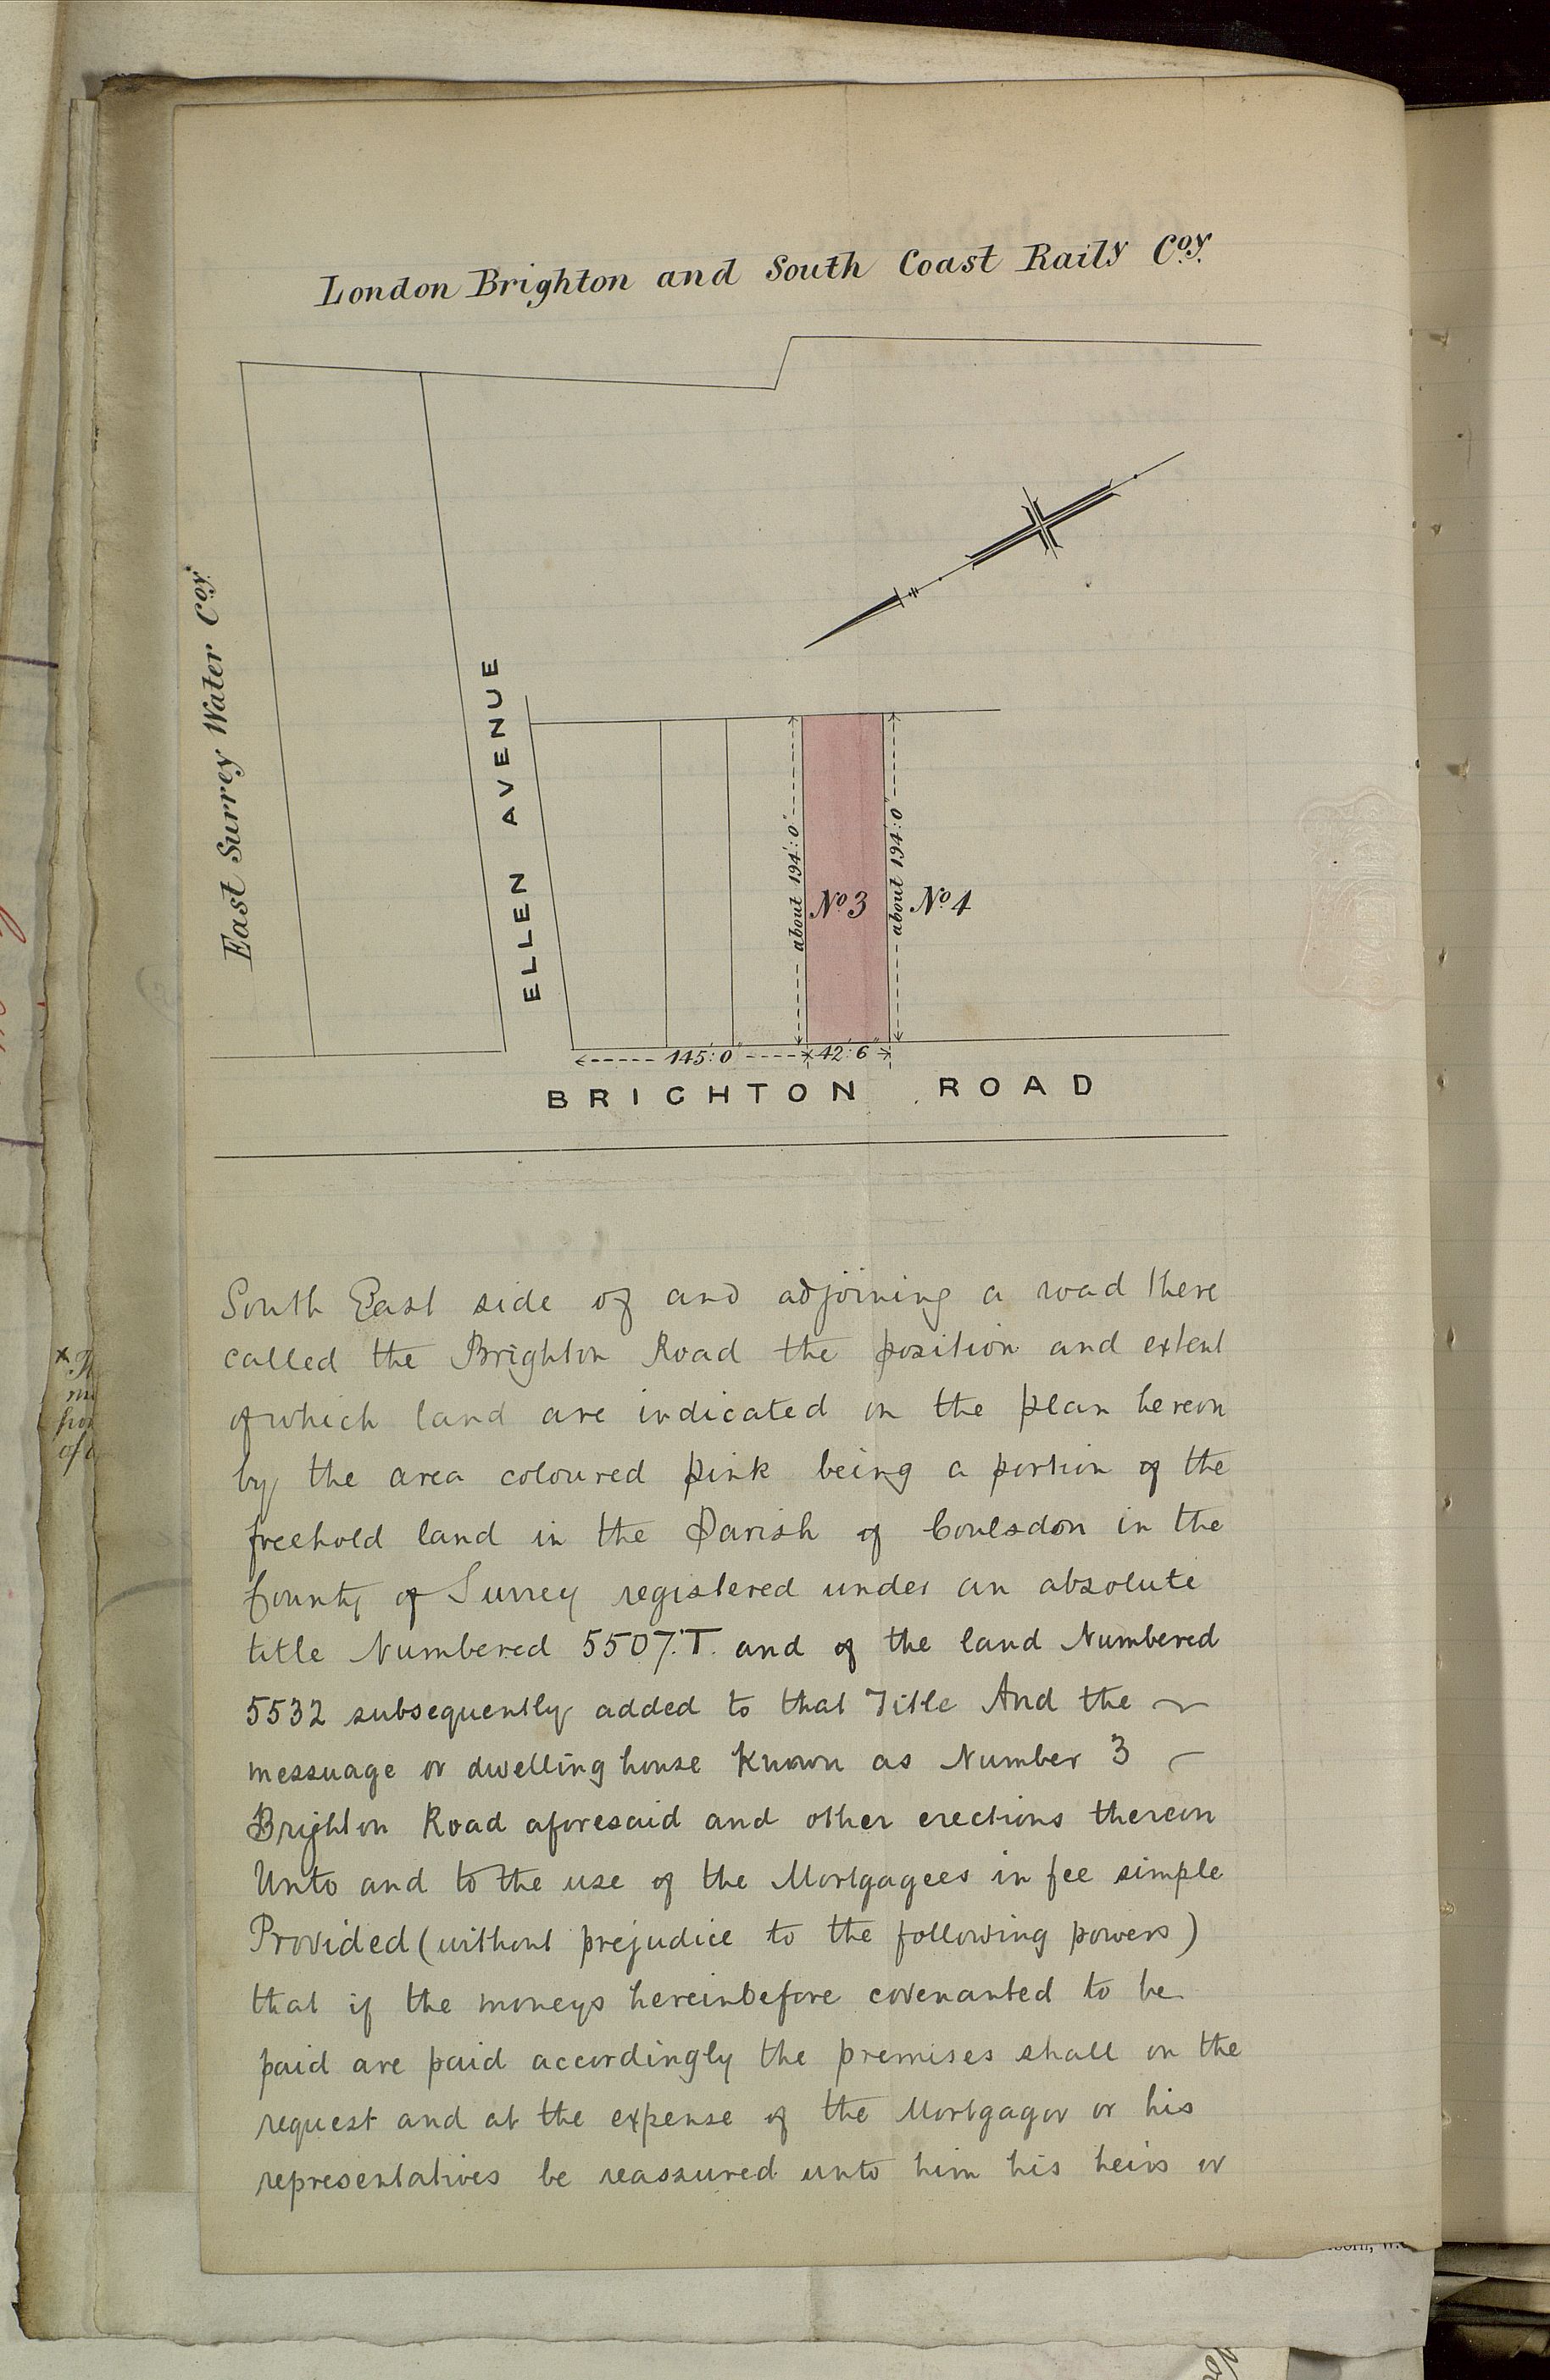 London Brighton and South Coast Raily Coy.
East Surrey Water Coy.
ELLEN AVENUE
about 194'.0"
No 3
about 194'.0"
No 4
145'.0"
42'.6"
BRIGHTON ROAD
South East side of and adjoining a road there
called the Brighton Road the position and extent
of which land are indicated on the plan hereon
by the area coloured pink being a portion of the
freehold land in the Parish of Coulsdon in the
County of Surrey registered under an absolute
title Numbered 5507.T. and of the land Numbered
5532 subsequently added to that Title And the
messuage or dwelling house known as Number 3
Brighton Road aforesaid and other erections thereon
Unto and to the use of the Mortgagees in fee simple
Provided (without prejudice to the following powers)
that if the moneys hereinbefore covenanted to be
paid are paid accordingly the premises shall on the
request and at the expense of the Mortgagor or his
representatives be reassured unto him his heirs or